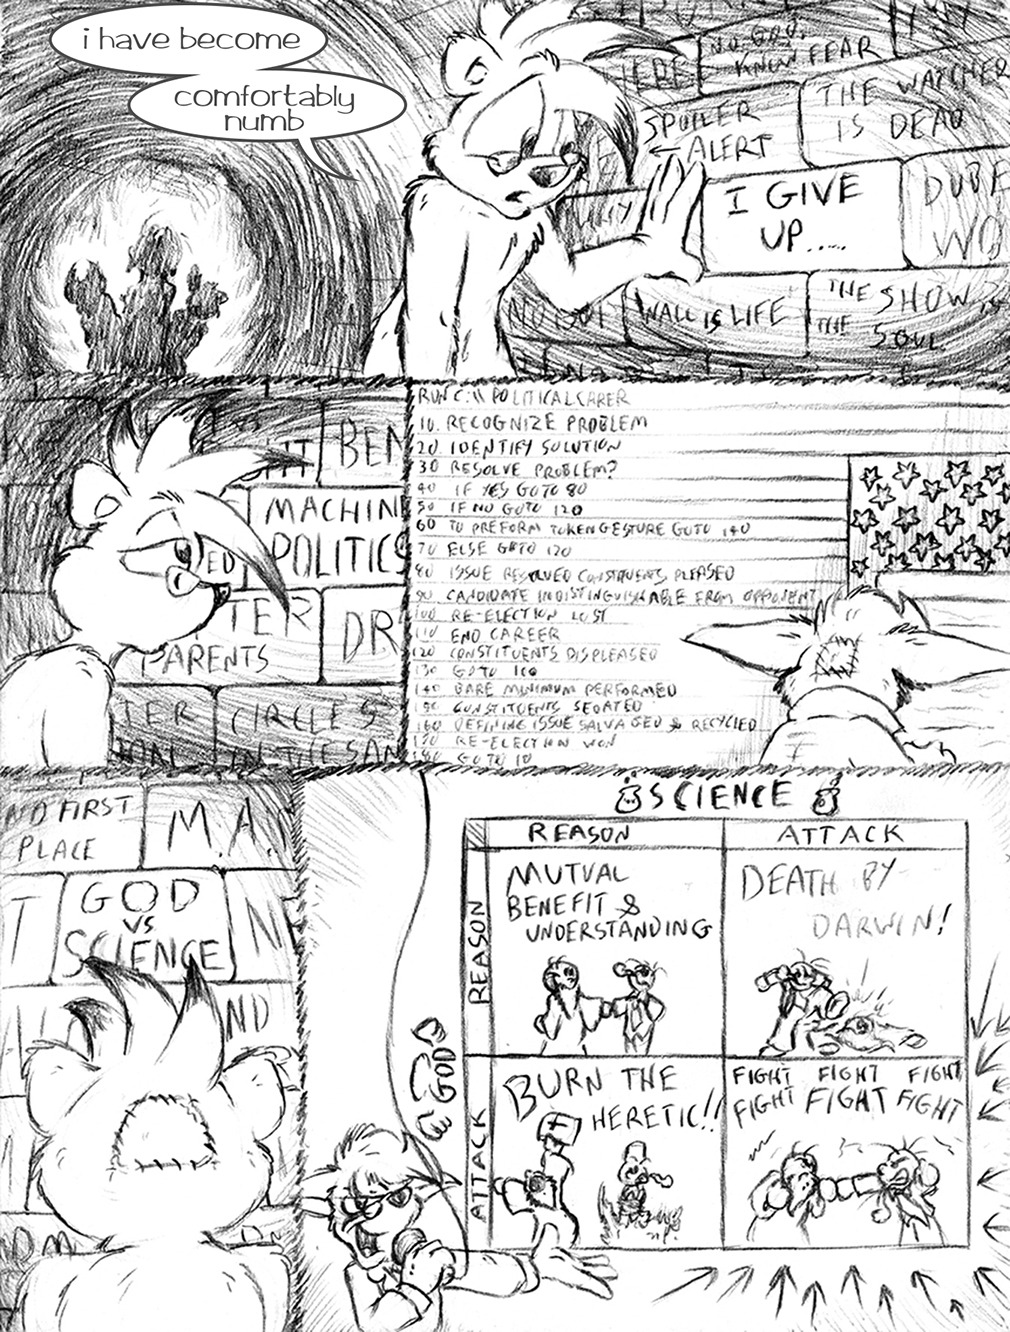 i have become
comfortably
numb
HERE
NO GOD,
KNOW FEAR
SPOILER
← ALERT
THE WATCHER
IS DEAD
I GIVE
UP.....
DUBE
WO
WALL IS LIFE
THE SHOW IS
THE SOUL
BEN
MACHIN
POLITICS
ED
TER
PARENTS
DR
TER
CIRCLES
IN THE SAN
RUN C:\\POLITICALCARER
10. RECOGNIZE PROBLEM
20. IDENTIFY SOLUTION
30 RESOLVE PROBLEM?
40 IF YES GOTO 80
50 IF NO GOTO 120
60 TO PREFORM TOKEN GESTURE GOTO 140
70 ELSE GOTO 120
80 ISSUE RESOLVED CONSTITUENTS PLEASED
90 CANDIDATE INDISTINGUISHABLE FROM OPPONENT
100 RE-ELECTION LOST
110 END CAREER
120 CONSTITUENTS DISPLEASED
130 GOTO 100
140 BARE MINIMUM PERFORMED
150 CONSTITUENTS SEDATED
160 DEFINING ISSUE SALVAGED & RECYCLED
170 RE-ELECTION WON
180 GOTO 10
ND FIRST
PLACE
M.A.
T
GOD
VS
SCIENCE
N
ND
SCIENCE
REASON
ATTACK
GOD
REASON
MUTUAL
BENEFIT &
UNDERSTANDING
DEATH BY
DARWIN!
ATTACK
BURN THE
HERETIC!!
FIGHT FIGHT FIGHT
FIGHT FIGHT FIGHT